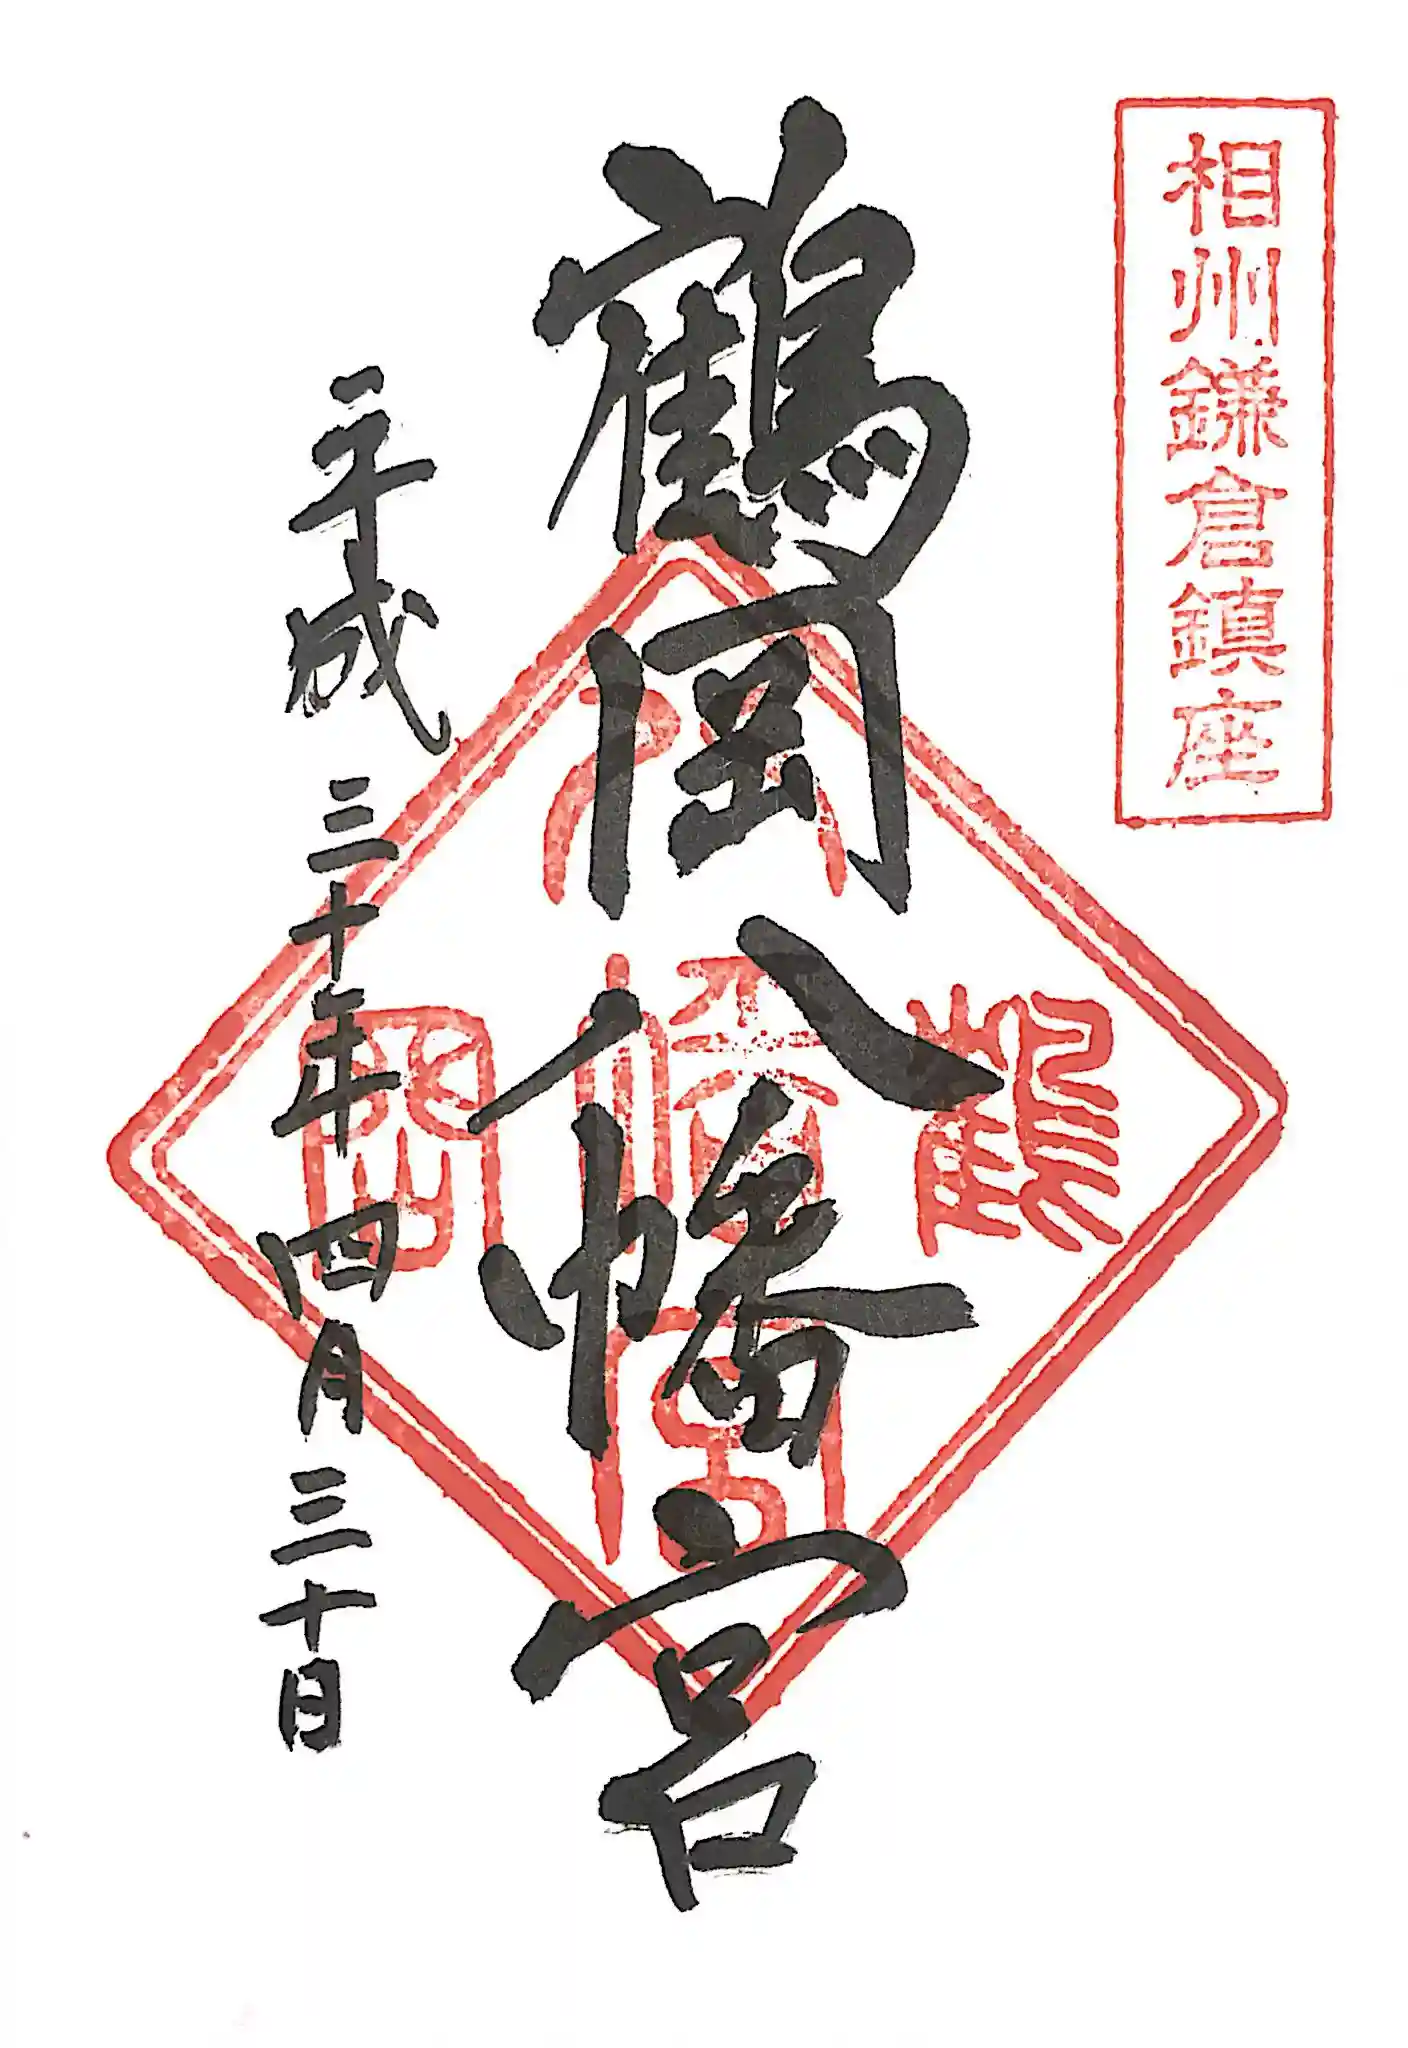 相州鎌倉鎮座
鶴岡八幡宮
平成三十年四月三十日
鶴岡八幡宮